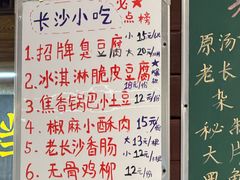 长沙小吃 必点榜
1.招牌臭豆腐 小15元/份 大20元/份
2.冰淇淋脆皮豆腐 18元/份
3.焦香锅巴小土豆 12元/份
4.椒麻小酥肉 15元/份
5.老长沙香肠 大13元 小12元
6.无骨鸡柳 12元/份
原汤
老长
杂
秘
大片